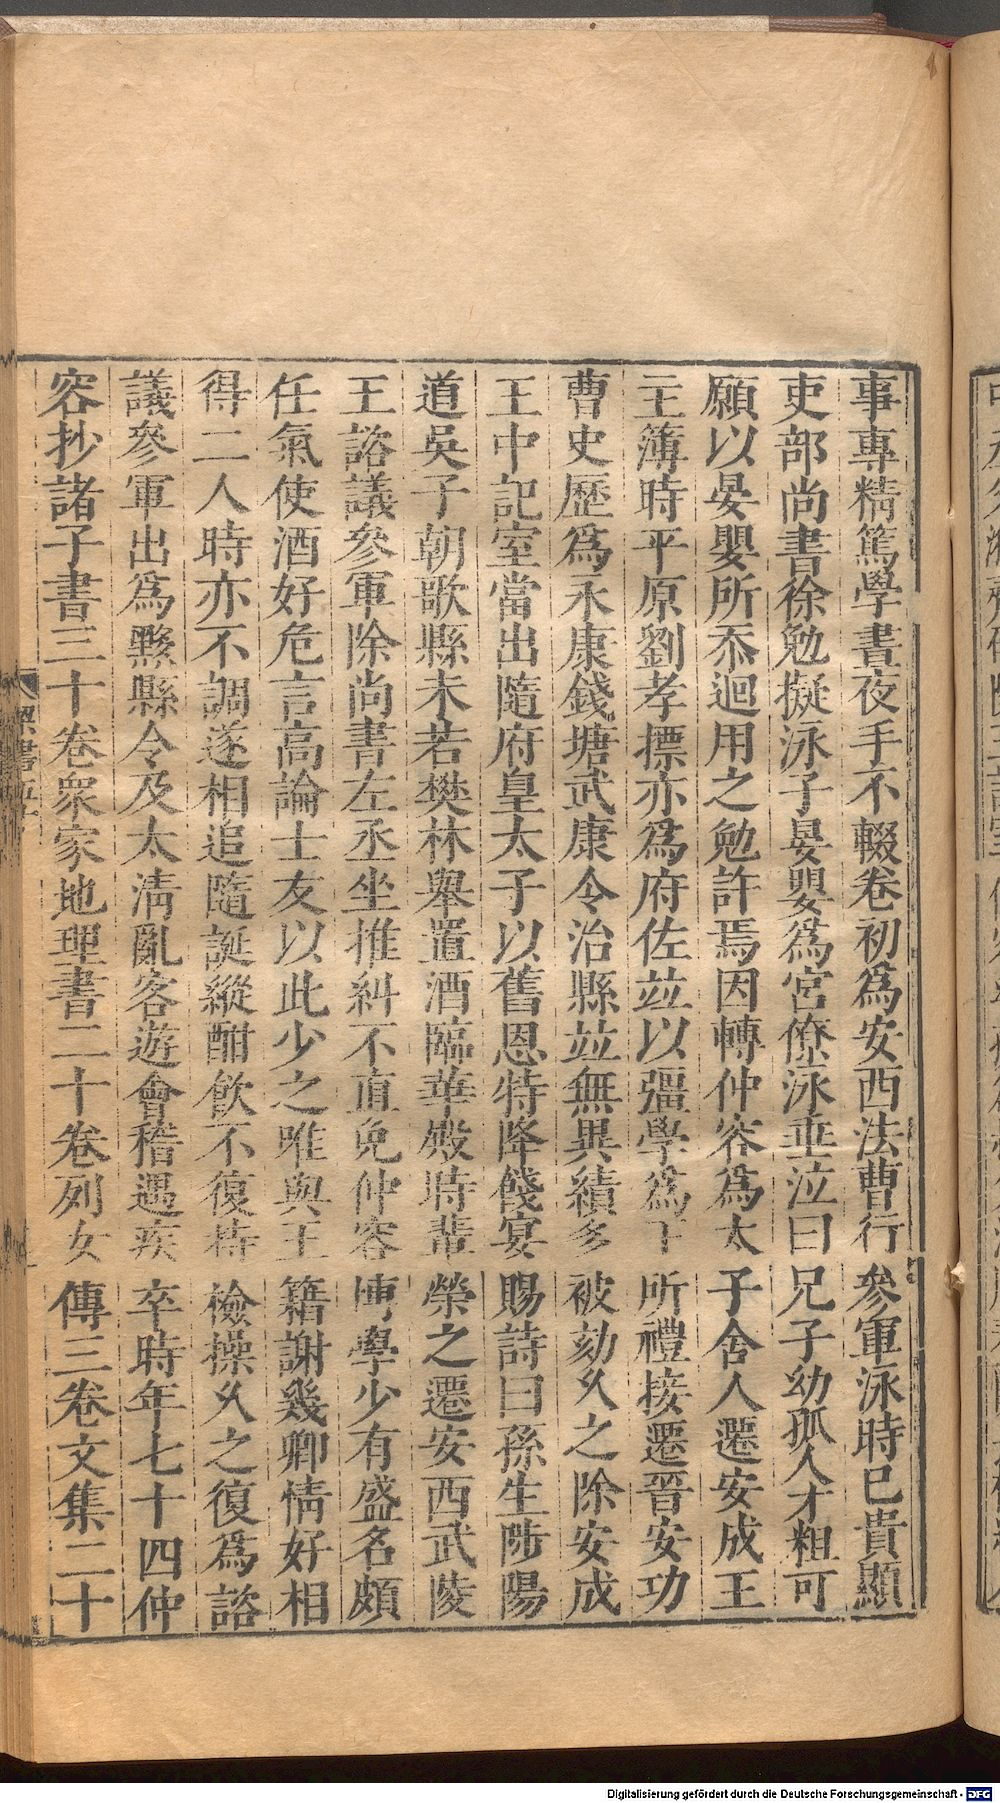 事專精篤學晝夜手不輟卷初爲安西法曹行參軍泳時已貴顯
吏部尚書徐勉擬泳子晏嬰爲宮僚泳垂泣曰兄子幼孤人才粗可
願以晏嬰所忝迴用之勉許焉因轉仲容爲太子舍人遷安成王
主簿時平原劉孝摽亦爲府佐竝以彊學爲王所禮接遷晉安功
曹史歷爲永康錢塘武康令治縣竝無異績多被劾久之除安成
王中記室當出隨府皇太子以舊恩特降餞宴賜詩曰孫生陟陽
道吳子朝歌縣未若樊林舉置酒臨華殿時輩榮之遷安西武陵
王諮議參軍除尚書左丞坐推糾不直免仲容博學少有盛名頗
任氣使酒好危言高論士友以此少之唯與王籍謝幾卿情好相
得二人時亦不調遂相追隨誕縱酣飲不復持檢操久之復爲諮
議參軍出爲黟縣令及太清亂客遊會稽遇疾卒時年七十四仲
容抄諸子書三十卷衆家地理書二十卷列女傳三卷文集二十
Digitalisierung gefördert durch die Deutsche Forschungsgemeinschaft - DFG